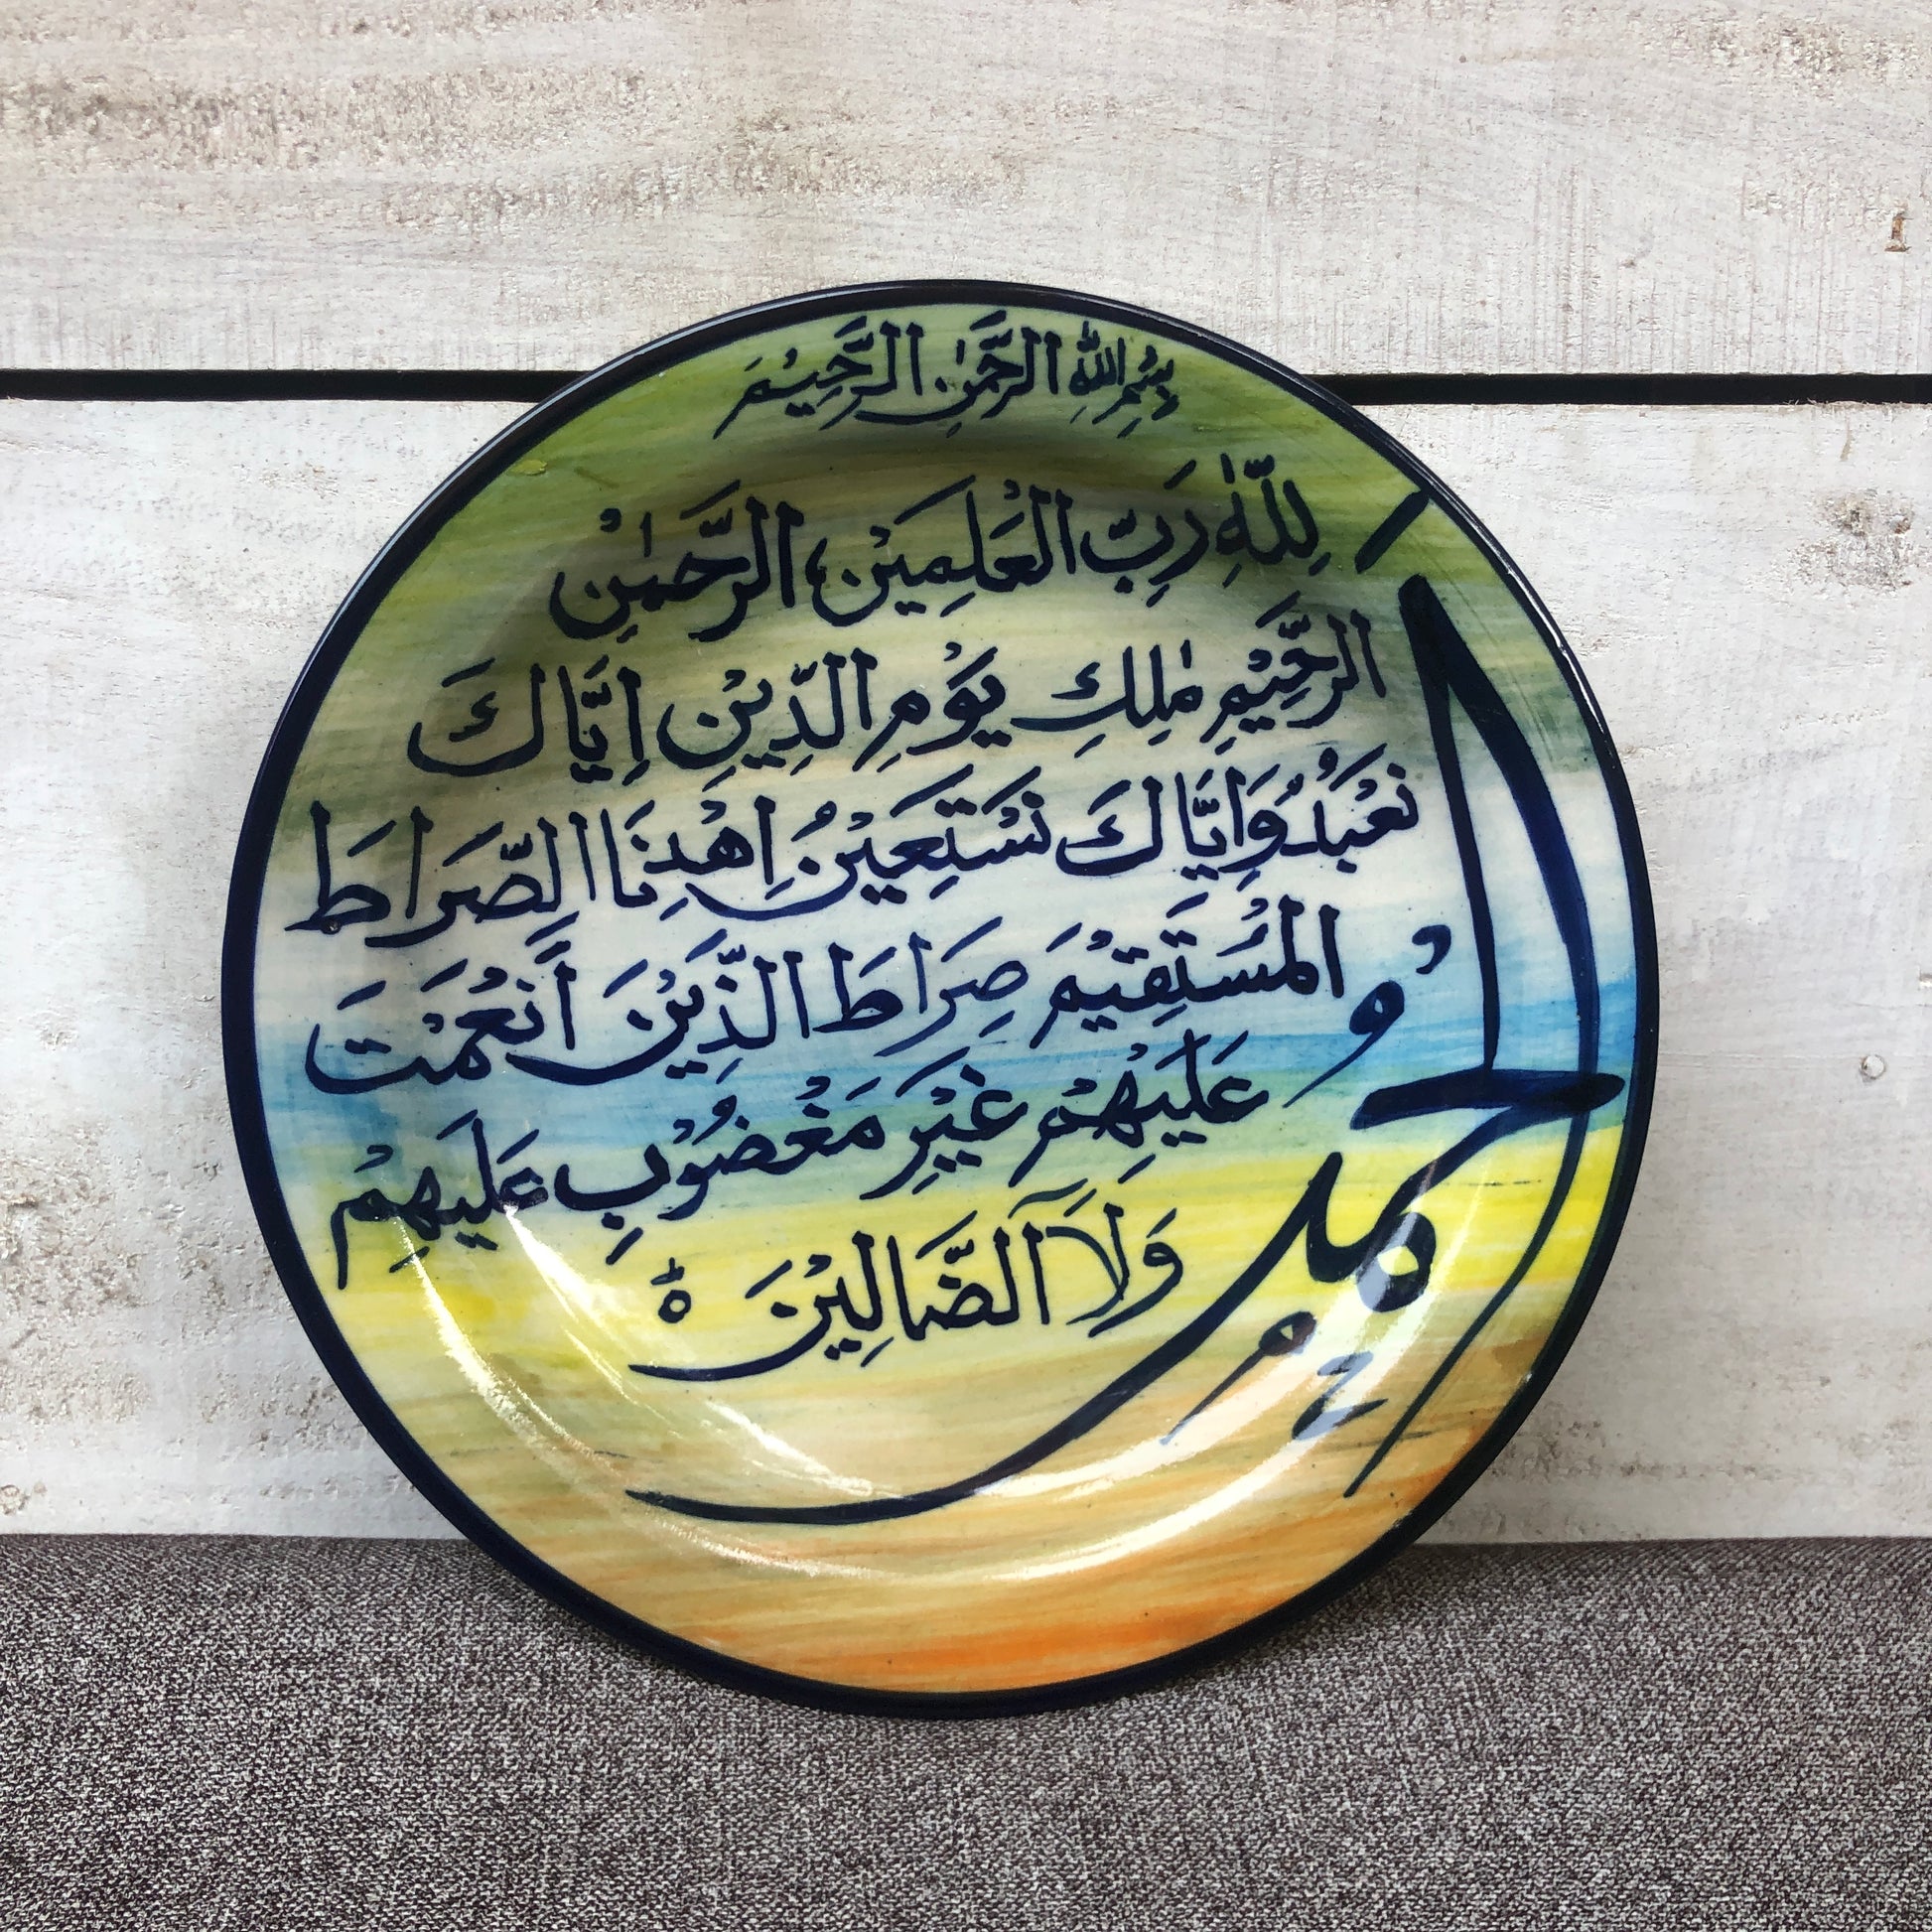 بِسْمِ اللّٰهِ الرَّحْمٰنِ الرَّحِيْمِ
اَلْحَمْدُ
لِلّٰهِ رَبِّ الْعٰلَمِيْنَ الرَّحْمٰنِ
الرَّحِيْمِ مٰلِكِ يَوْمِ الدِّيْنِ اِيَّاكَ
نَعْبُدُ وَاِيَّاكَ نَسْتَعِيْنُ اِهْدِنَا الصِّرَاطَ
الْمُسْتَقِيْمَ صِرَاطَ الَّذِيْنَ اَنْعَمْتَ
عَلَيْهِمْ غَيْرِ مَغْضُوْبِ عَلَيْهِمْ
وَلَا الضَّالِيْنَ